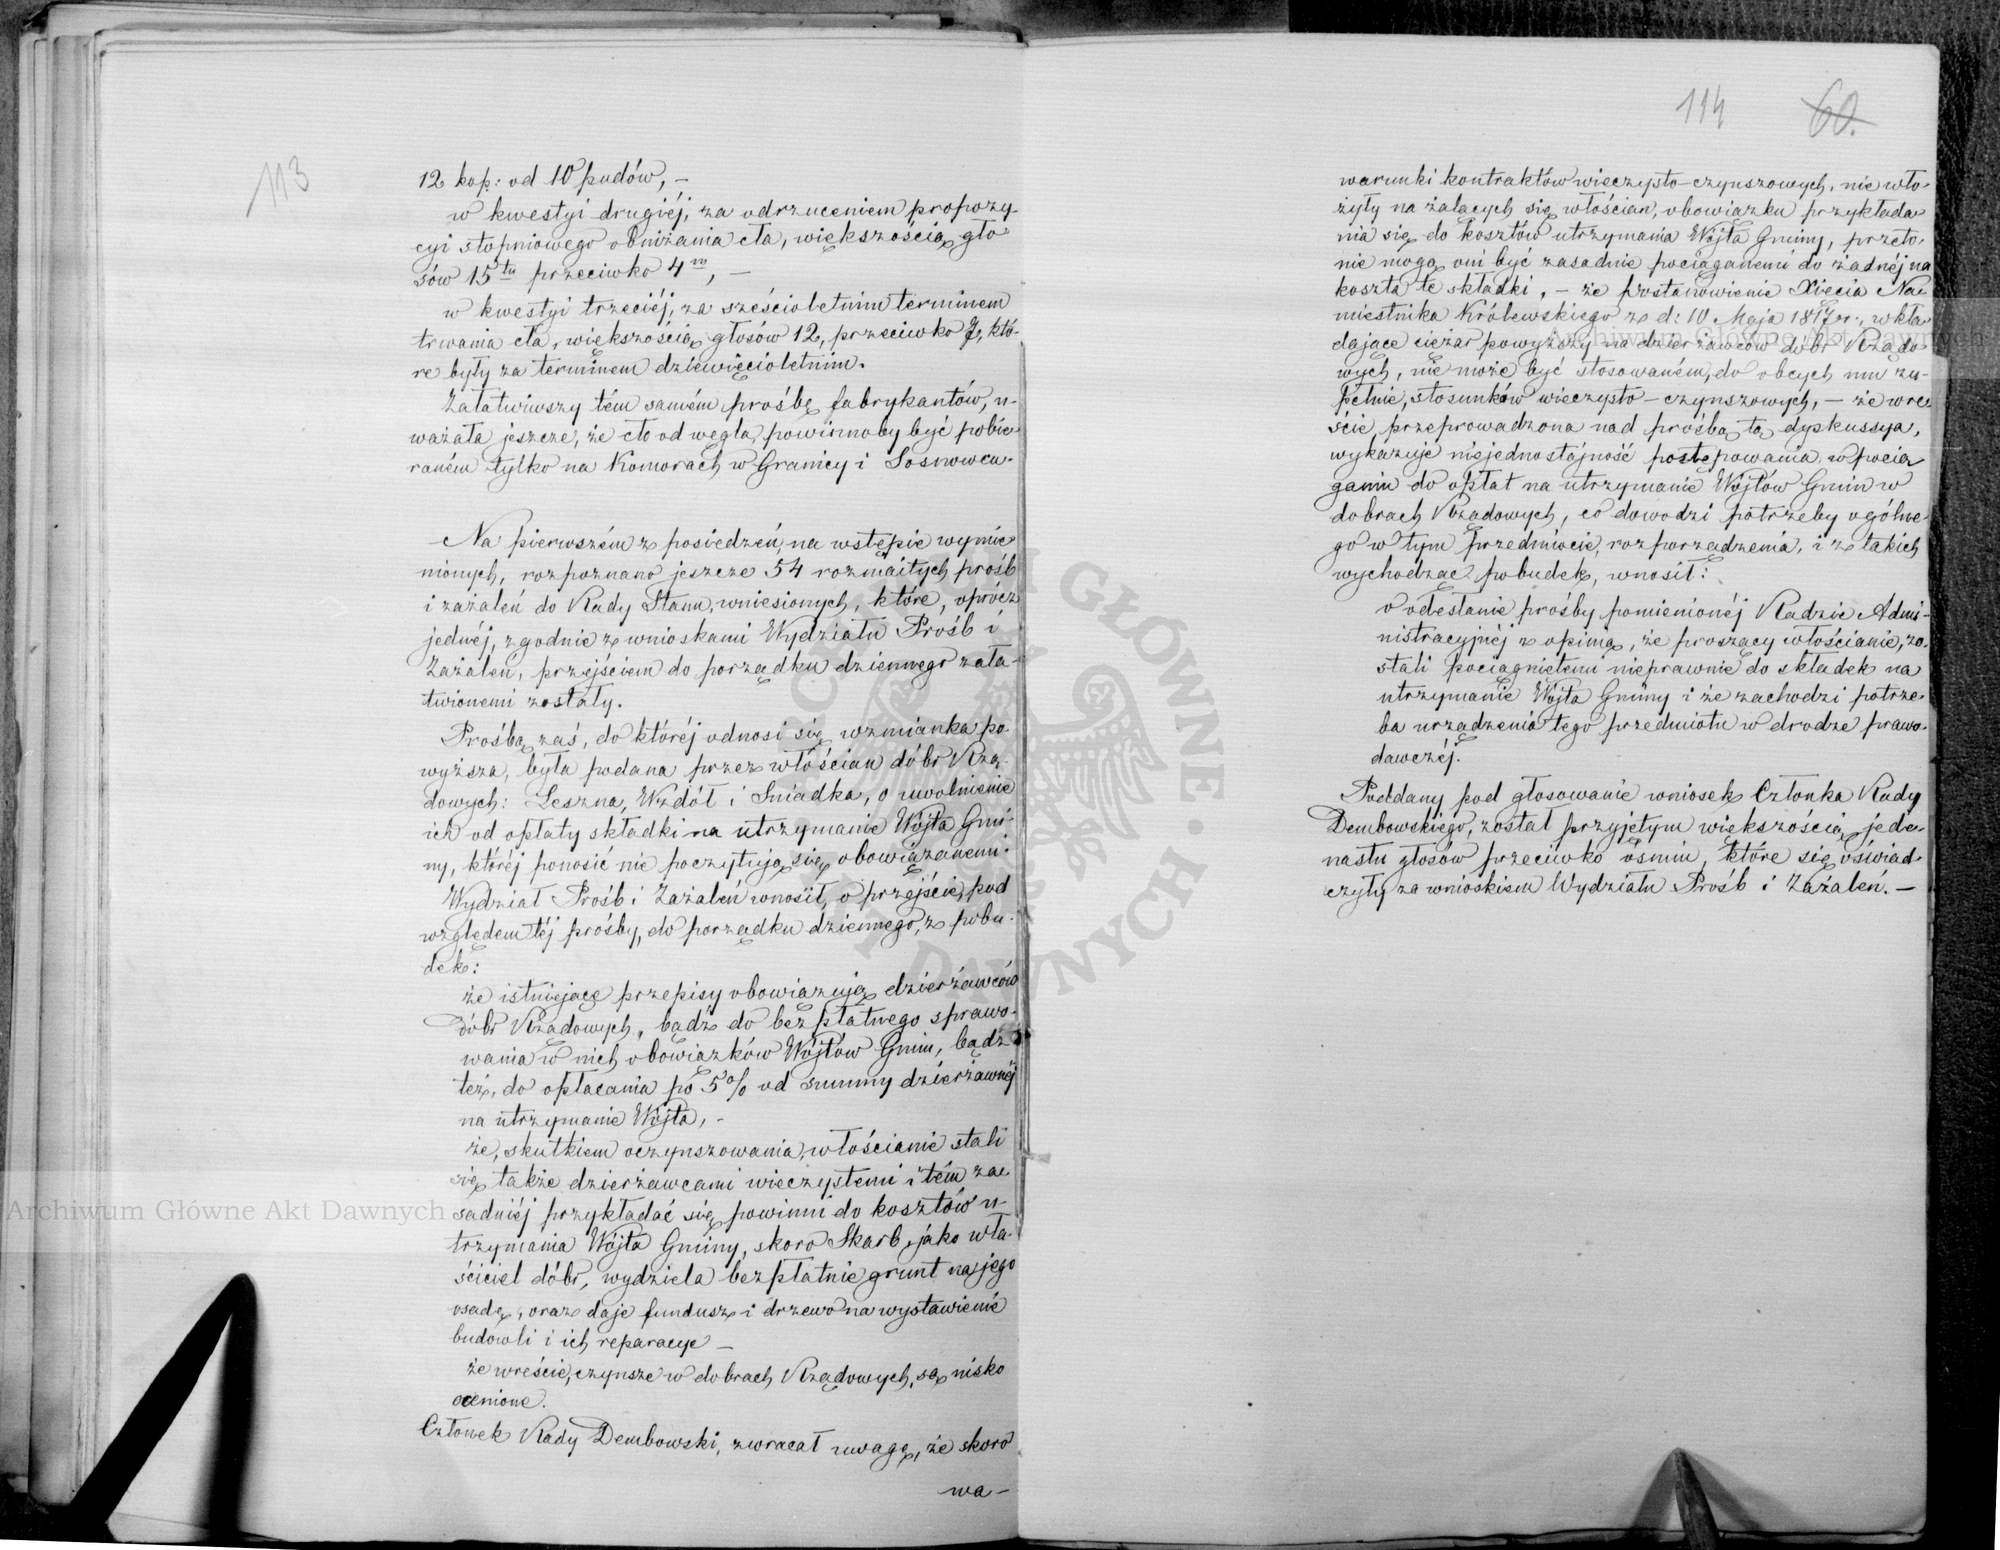 113
12 kop: od 10 pudów, –
w kwestyi drugiéj, za odrzuceniem propozy-
cyi stopniowego obniżania cła, większością gło-
sów 15tu przeciwko 4m, –
w kwestyi trzeciéj, za sześcioletnim terminem
trwania cła, większością głosów 12, przeciwko 7, któ-
re były za terminem dziewięcioletnim.
Załatwiwszy tém samém prośbę fabrykantów, u-
ważała jeszcze, że cło od węgla, powinnoby być pobie-
raném tylko na Komorach w Granicy i Sosnowcu.
Na pierwszém z posiedzeń, na wstępie wymie-
nionych, rozpoznano jeszcze 54 rozmaitych próśb
i zażaleń do Rady Stanu, wniesionych, które, oprócz
jednéj, zgodnie z wnioskami Wydziału Próśb i
Zażaleń, przejściem do porządku dziennego zała-
twionemi zostały.
Prośba zaś, do któréj odnosi się wzmianka po-
wyższa, była podana przez włościan dóbr Rzą-
dowych: Leszna, Wzdół i Sniadka, o uwolnienie
ich od opłaty składki na utrzymanie Wójta Gmi-
ny, któréj ponosić nie poczytują się obowiązanemi.
Wydział Próśb i Zażaleń wnosił, o przejście, pod
względem téj prośby, do porządku dziennego, z pobu-
dek:
że istniejące przepisy obowiązują dzierżawców
dóbr Rządowych, bądź do bezpłatnego sprawo-
wania w nich obowiązków Wójtów Gmin, bądź
téż, do opłacania po 5% od summy dzierżawnéj
na utrzymanie Wójta, –
że, skutkiem oczynszowania, włościanie stali
się także dzierżawcami wieczystemi i tém za-
sadniéj przykładać się powinni do kosztów u-
trzymania Wójta Gminy, skoro Skarb, jako wła-
ściciel dóbr, wydziela bezpłatnie grunt na jego
osadę, oraz daje fundusz i drzewo na wystawienie
budowli i ich reparacye –
że wreście, czynsze w dobrach Rządowych, są nisko
ocenione.
Członek Rady Dembowski, zwracał uwagę, że skoro
wa-
114 60.
warunki kontraktów wieczysto-czynszowych, nie wło-
żyły na żalących się włościan, obowiązku przykłada-
nia się do kosztów utrzymania Wójta Gminy, przeto,
nie mogą oni być zasadnie pociąganemi do żadnéj na
koszta te składki, – że postanowienie Xięcia Na-
miestnika Królewskiego z d: 10 Maja 1817 r:, wkła-
dające ciężar powyższy na dzierżawców dóbr Rządo-
wych, nie może być stosowaném, do obcych mu zu-
pełnie, stosunków wieczysto-czynszowych, – że wre-
ście, przeprowadzona nad prośbą tą dyskussya,
wykazuje niejednostajność postępowania w pocią-
ganiu do opłat na utrzymanie Wójtów Gmin w
dobrach Rządowych, co dowodzi potrzeby ogólne-
go w tym przedmiocie, rozporządzenia, i z takich
wychodząc pobudek, wnosił:
o odesłanie prośby pomienionéj Radzie Admi-
nistracyjnéj z opinią, że proszący włościanie, zo-
stali pociągnięteni nieprawnie do składek na
utrzymanie Wójta Gminy i że zachodzi potrze-
ba urządzenia tego przedmiotu w drodze prawo-
dawczéj.
Poddany pod głosowanie wniosek Członka Rady
Dembowskiego, został przyjętym większością jede-
nastu głosów przeciwko ośmiu, które się oświad-
czyły za wnioskiem Wydziału Próśb i Zażaleń. –
Archiwum Główne Akt Dawnych
Archiwum Główne Akt Dawnych
ARCHIWUM GŁÓWNE AKT DAWNYCH